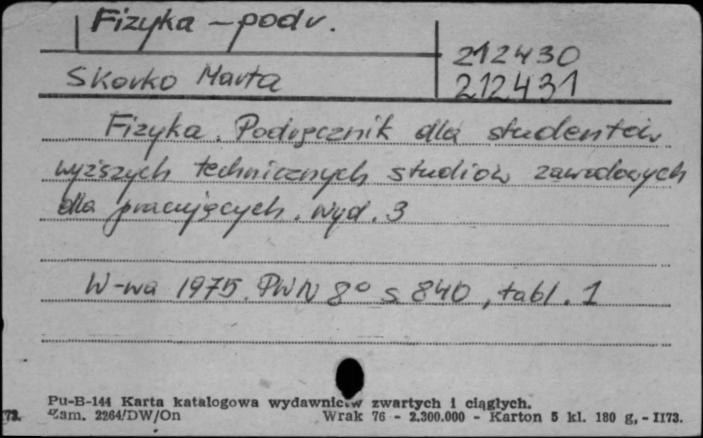 Fizyka - podr.
212430
Skorko Marta
212431
Fizyka. Podręcznik dla studentów
wyższych technicznych studiów zawodowych
dla pracujących. Wyd. 3
W-wa 1975. PWN 8° s 840, tabl. 1
Pu-B-144 Karta katalogowa wydawnictw zwartych i ciągłych.
73. Zam. 2264/DW/On Wrak 76 - 2.300.000 - Karton 5 kl. 180 g, - II73.